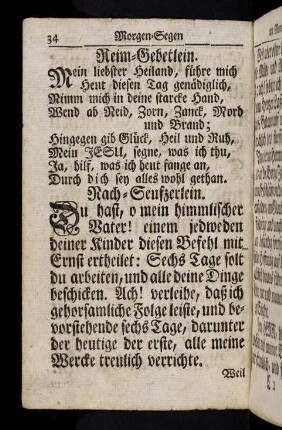 34 Morgen-Segen
Reim-Gebetlein.
Mein liebster Heiland, führe mich
Heut diesen Tag genädiglich,
Nimm mich in deine starcke Hand,
Wend ab Neid, Zorn, Zanck, Mord
und Brand;
Hingegen gib Glück, Heil und Ruh,
Mein JESU, segne, was ich thu,
Ja, hilf, was ich heut fange an,
Durch dich sey alles wohl gethan.
Nach-Seufzerlein.
Du hast, o mein himmlischer
Vater! einem jedweden
deiner Kinder diesen Befehl mit
Ernst ertheilet: Sechs Tage solt
du arbeiten, und alle deine Dinge
beschicken. Ach! verleihe, daß ich
gehorsamliche Folge leiste, und be-
vorstehende sechs Tage, darunter
der heutige der erste, alle meine
Wercke treulich verrichte.
Weil